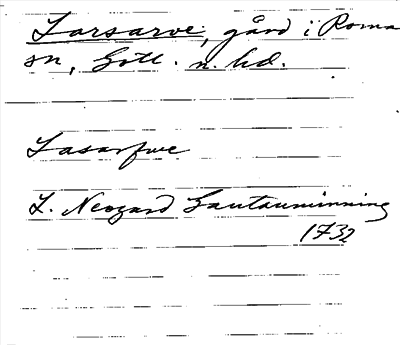 Larsarve, gård i Roma
sn, Gotl. n. hd.
Lasarfwe
L. Neogard Gautauminning
1732